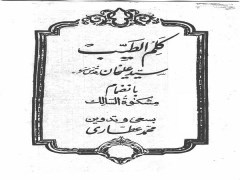 کلم الطیّب
سید علیخان
بانضمام
مشکوة السالک
بسعی و تدوین
محمد عطاری